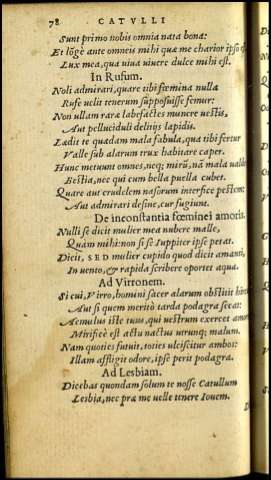 78 CATVLLI
Sunt primo nobis omnia nata bona:
Et lõgè ante omneis mihi quæ me charior ipso
Lux mea, qua uiua uiuere dulce mihi est.
In Rufum.
Noli admirari, quare tibi fœmina nulla
Rufe uelit tenerum supposuisse femur:
Non ullam raræ labefactes munere uestis,
Aut pelluciduli delitijs lapidis.
Lædit te quædam mala fabula, qua tibi fertur
Valle sub alarum trux habitare caper.
Hunc metuunt omnes, neq; mirũ, nã mala
Bestia, nec qui cum bella puella cubet.
Quare aut crudelem nasorum interfice pestem:
Aut admirari desine, cur fugiunt.
De inconstantia fœminei amoris.
Nulli se dicit mulier mea nubere malle,
Quàm mihi: non si se Iuppiter ipse petat.
Dicit, SED mulier cupido quod dicit amanti,
In uento, & rapida scribere oportet aqua.
Ad Virronem.
Si cui, Virro, homini sacer alarum obstitit
Aut si quem meritò tarda podagra secat:
Aemulus iste tuus, qui uestrum exercet
Mirificè est actu nactus utrunq; malum.
Nam quoties futuit, toties ulciscitur ambos:
Illam affligit odore, ipse perit podagra.
Ad Lesbiam.
Dicebas quondam solum te nosse Catullum
Lesbia, nec præ me uelle tenere Iouem.